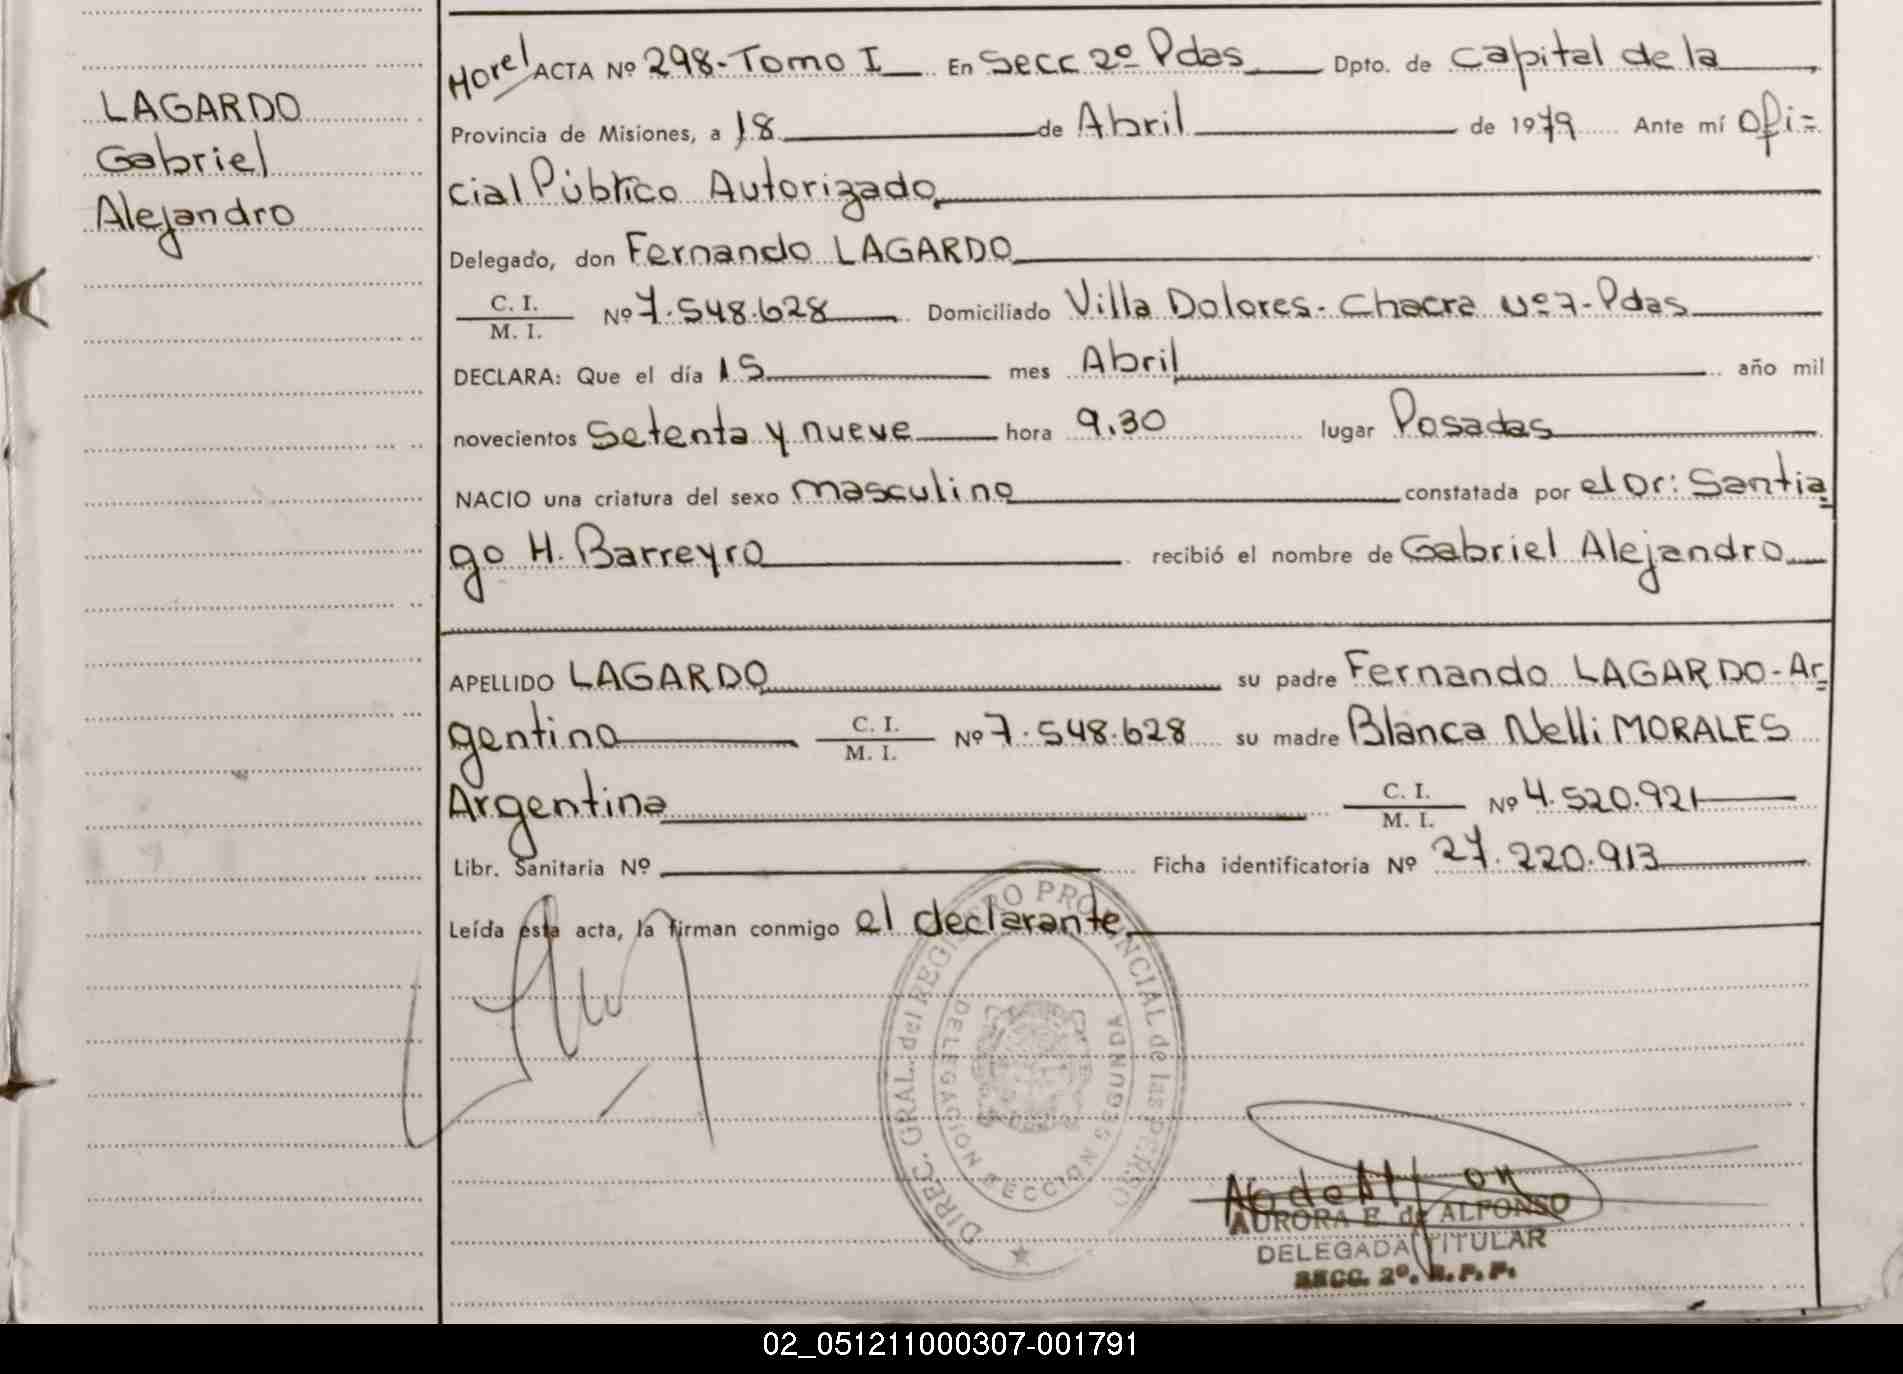 LAGARDO
Gabriel
Alejandro
ACTA Nº 298-Tomo I En Secc 2º Pdas Dpto. de Capital de la
Provincia de Misiones, a 18 de Abril de 1979 Ante mí Ofi=
cial Público Autorizado
Delegado, don Fernando LAGARDO
C. I.
M. I. Nº 7.548.628 Domiciliado Villa Dolores-Chacra Nº 7-Pdas
DECLARA: Que el día 15 mes Abril año mil
novecientos Setenta y nueve hora 9.30 lugar Posadas
NACIO una criatura del sexo masculino constatada por el Dr: Santia
go H. Barreyro recibió el nombre de Gabriel Alejandro
APELLIDO LAGARDO su padre Fernando LAGARDO-Ar
gentino C. I. M. I. Nº 7.548.628 su madre Blanca Nelli MORALES
Argentina C. I. M. I. Nº 4.520.921
Libr. Sanitaria Nº Ficha identificatoria Nº 27.220.913
Leída esta acta, la firman conmigo el declarante
DIREC. GRAL. del REGISTRO PROVINCIAL de las PERSO
DELEGACION SECCION SEGUNDA
AURORA E. de ALFONSO
DELEGADA TITULAR
SECC. 2º. R. P. P.
02_051211000307-001791